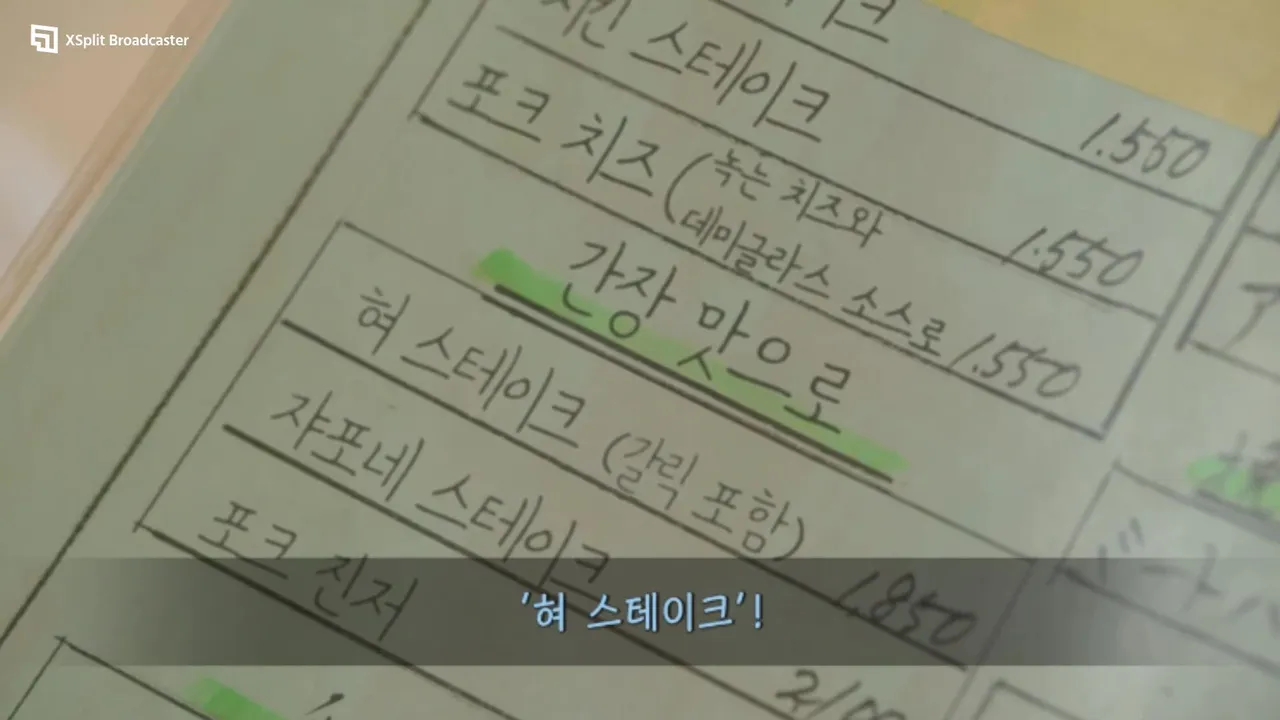 XSplit Broadcaster
스테이크 1.550
포크 치즈 (녹는 치즈와 1.550
데미글라스 소스로 1.550
간장 맛으로
혀 스테이크 (갈릭 포함) 1.850
쟈포네 스테이크
포크 진저
'혀 스테이크'!